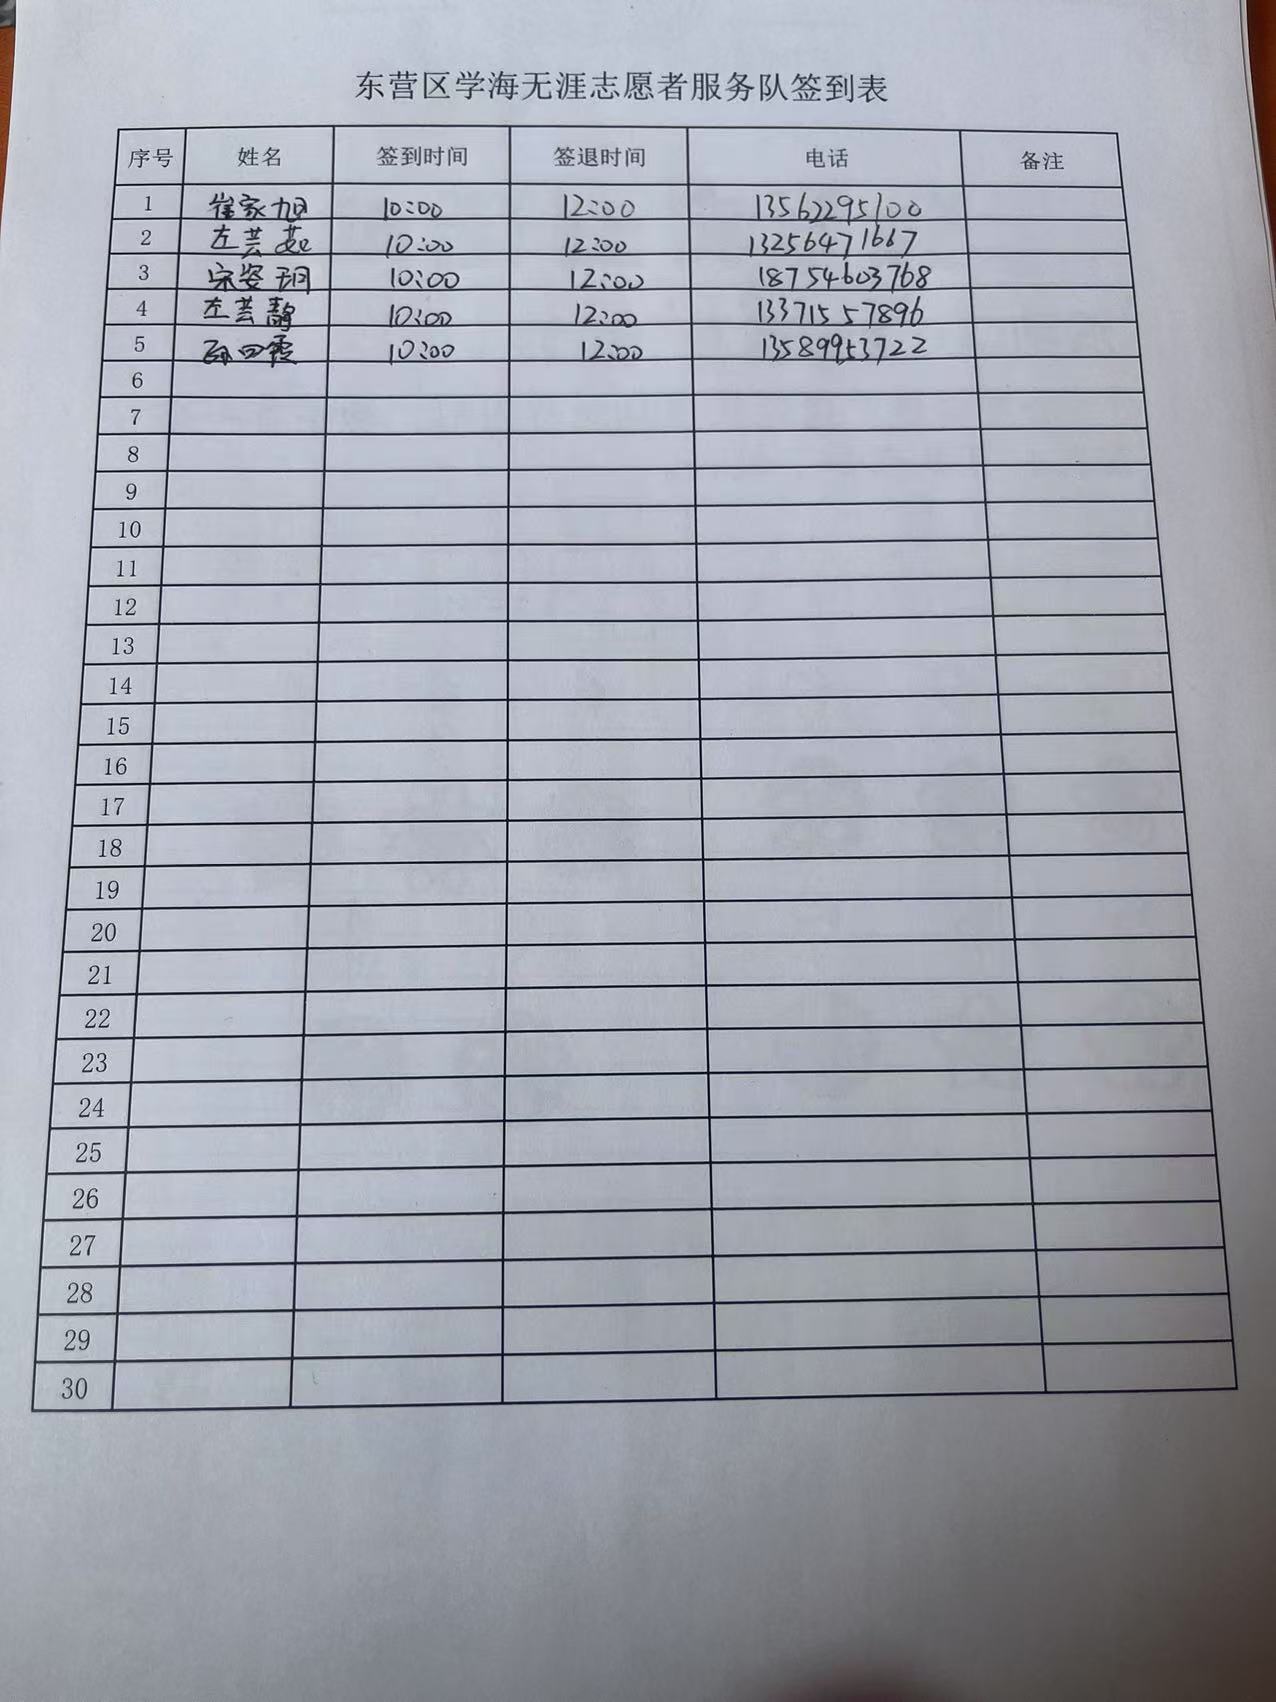 东营区学海无涯志愿者服务队签到表
序号 姓名 签到时间 签退时间 电话 备注
1 崔家旭 10:00 12:00 13562295100
2 左芸茹 10:00 12:00 13256471667
3 宋姿玥 10:00 12:00 18754603768
4 左芸静 10:00 12:00 13371557896
5 10:00 12:00 13589953722
6
7
8
9
10
11
12
13
14
15
16
17
18
19
20
21
22
23
24
25
26
27
28
29
30